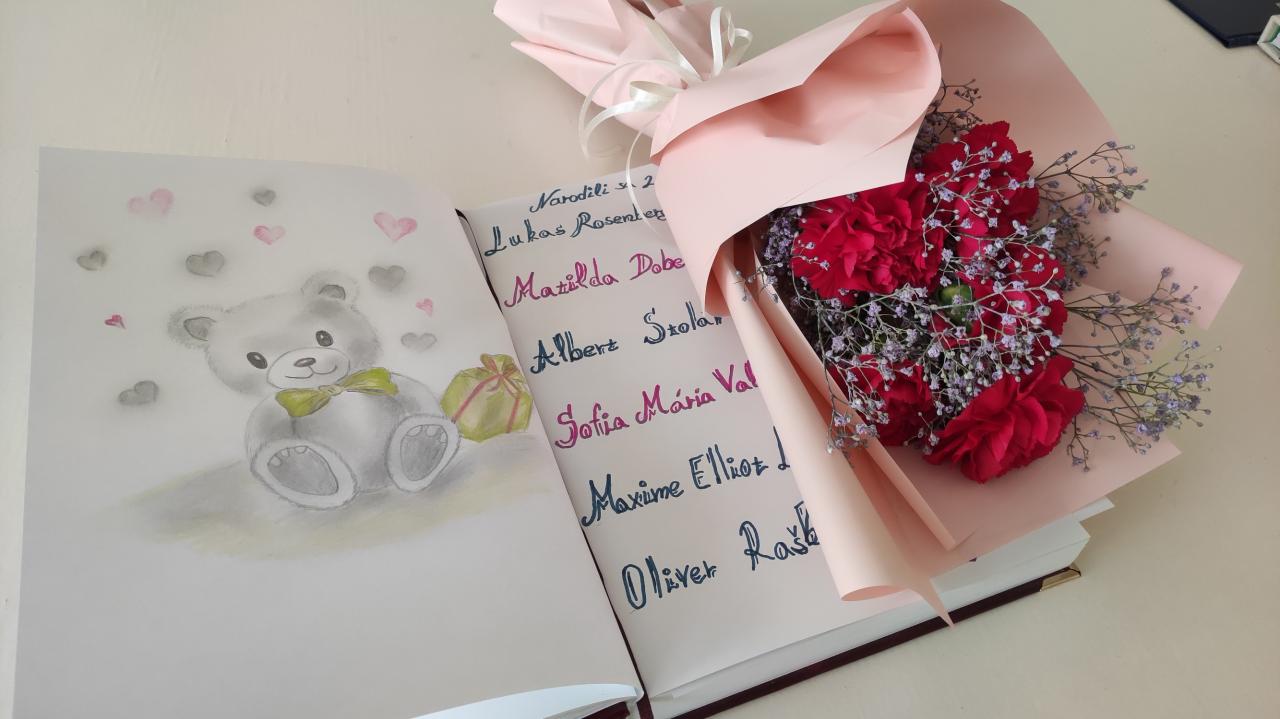 Narodili sa 2
Lukas Rosenberg
Matilda Dobe
Albert Szolár
Sofia Mária Val
Maxime Elliot L
Oliver Rašk